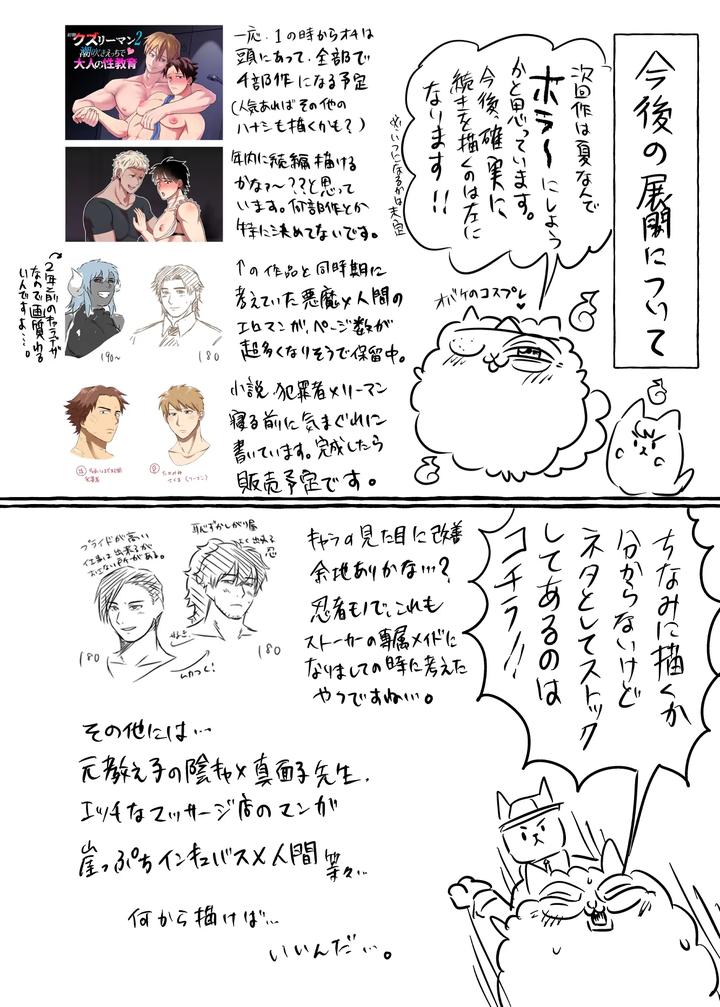 今後の展開について
次回作は夏なんで
ホラーにしよう
かと思っています。
今後、確実に、
続きを描くのは左に
なります!!
※いつになるかは未定
オバケのコスプレ
クズリーマン2
潮吹きえっちで
大人の性教育
一応、1の時からオチは
頭にあって、全部で
4部作になる予定
(人気あればその他の
ハナシも描くかも?)
年内に続編描ける
かなぁ〜??と思って
います。何部作とか
特に決めてないです。
↑の作品と同時期に
考えていた悪魔×人間の
エロマンガ、ページ数が
超多くなりそうで保留中。
2年前のキャラデザ
なので画質わる
いんですよ…。
190〜
180
小説、犯罪者×リーマン
寝る前に気まぐれに
書いています。完成したら
販売予定です。
ちなみに描くか
分からないけど
ネタとしてストック
してあるのは
コチラ!!
プライドが高い
恥ずかしがり屋
180
180
ムカつく!
キャラの見た目に改善
余地ありかな…?
忍者モノで、これも
ストーカーの専属メイドに
なりましての時に考えた
やつですね…。
その他には…
元教え子の陰キャ×真面子先生、
エッチなマッサージ店のマンガ
崖っぷちインキュバス×人間 等々…
何から描けば…
いいんだ…。